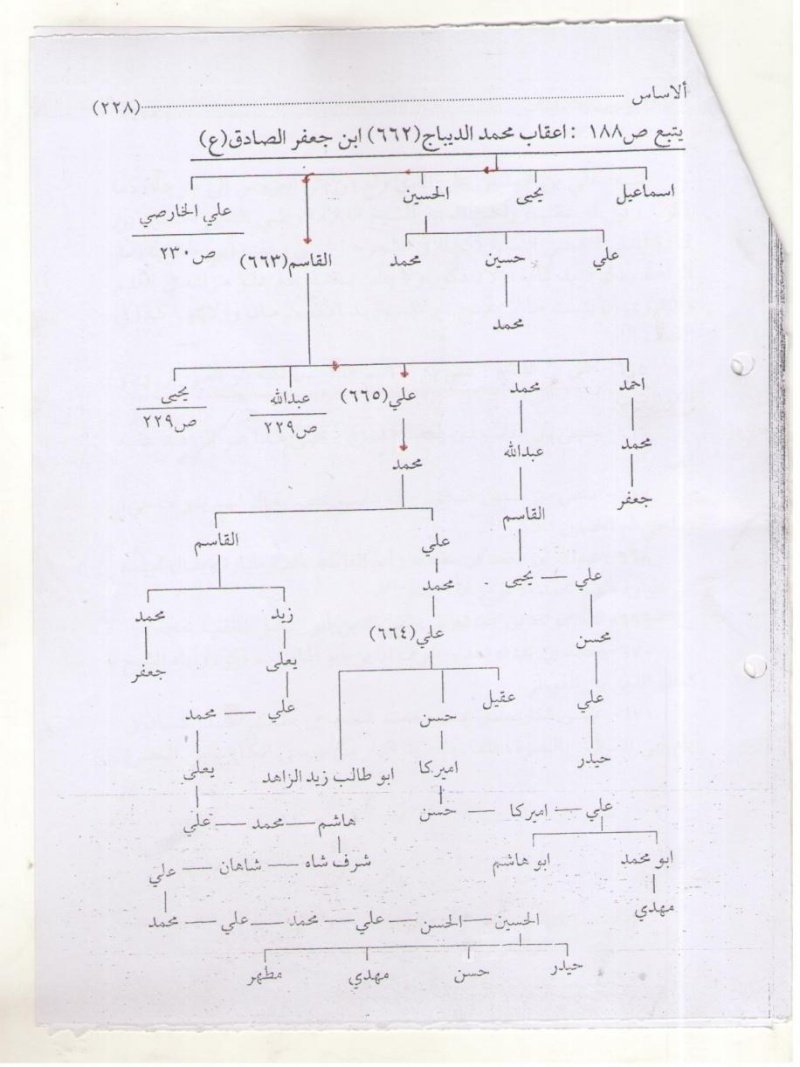 ألاساس (٢٢٨)
يتبع ص١٨٨ : اعقاب محمد الديباج(٦٦٢) ابن جعفر الصادق(ع)
اسماعيل يحيى الحسين علي الخارصي
ص٢٣٠
علي حسين محمد القاسم(٦٦٣)
محمد
احمد محمد علي(٦٦٥) عبدالله يحيى
ص٢٢٩ ص٢٢٩
محمد عبدالله محمد
جعفر القاسم
علي القاسم
علي يحيى محمد زيد محمد
محسن علي(٦٦٤) يعلى جعفر
علي عقيل حسن علي محمد
حيدر اميركا ابو طالب زيد الزاهد يعلى
علي اميركا حسن هاشم محمد علي
ابو محمد ابو هاشم شرف شاه شاهان علي
مهدي
الحسين الحسن علي محمد علي محمد
حيدر حسن مهدي مطهر